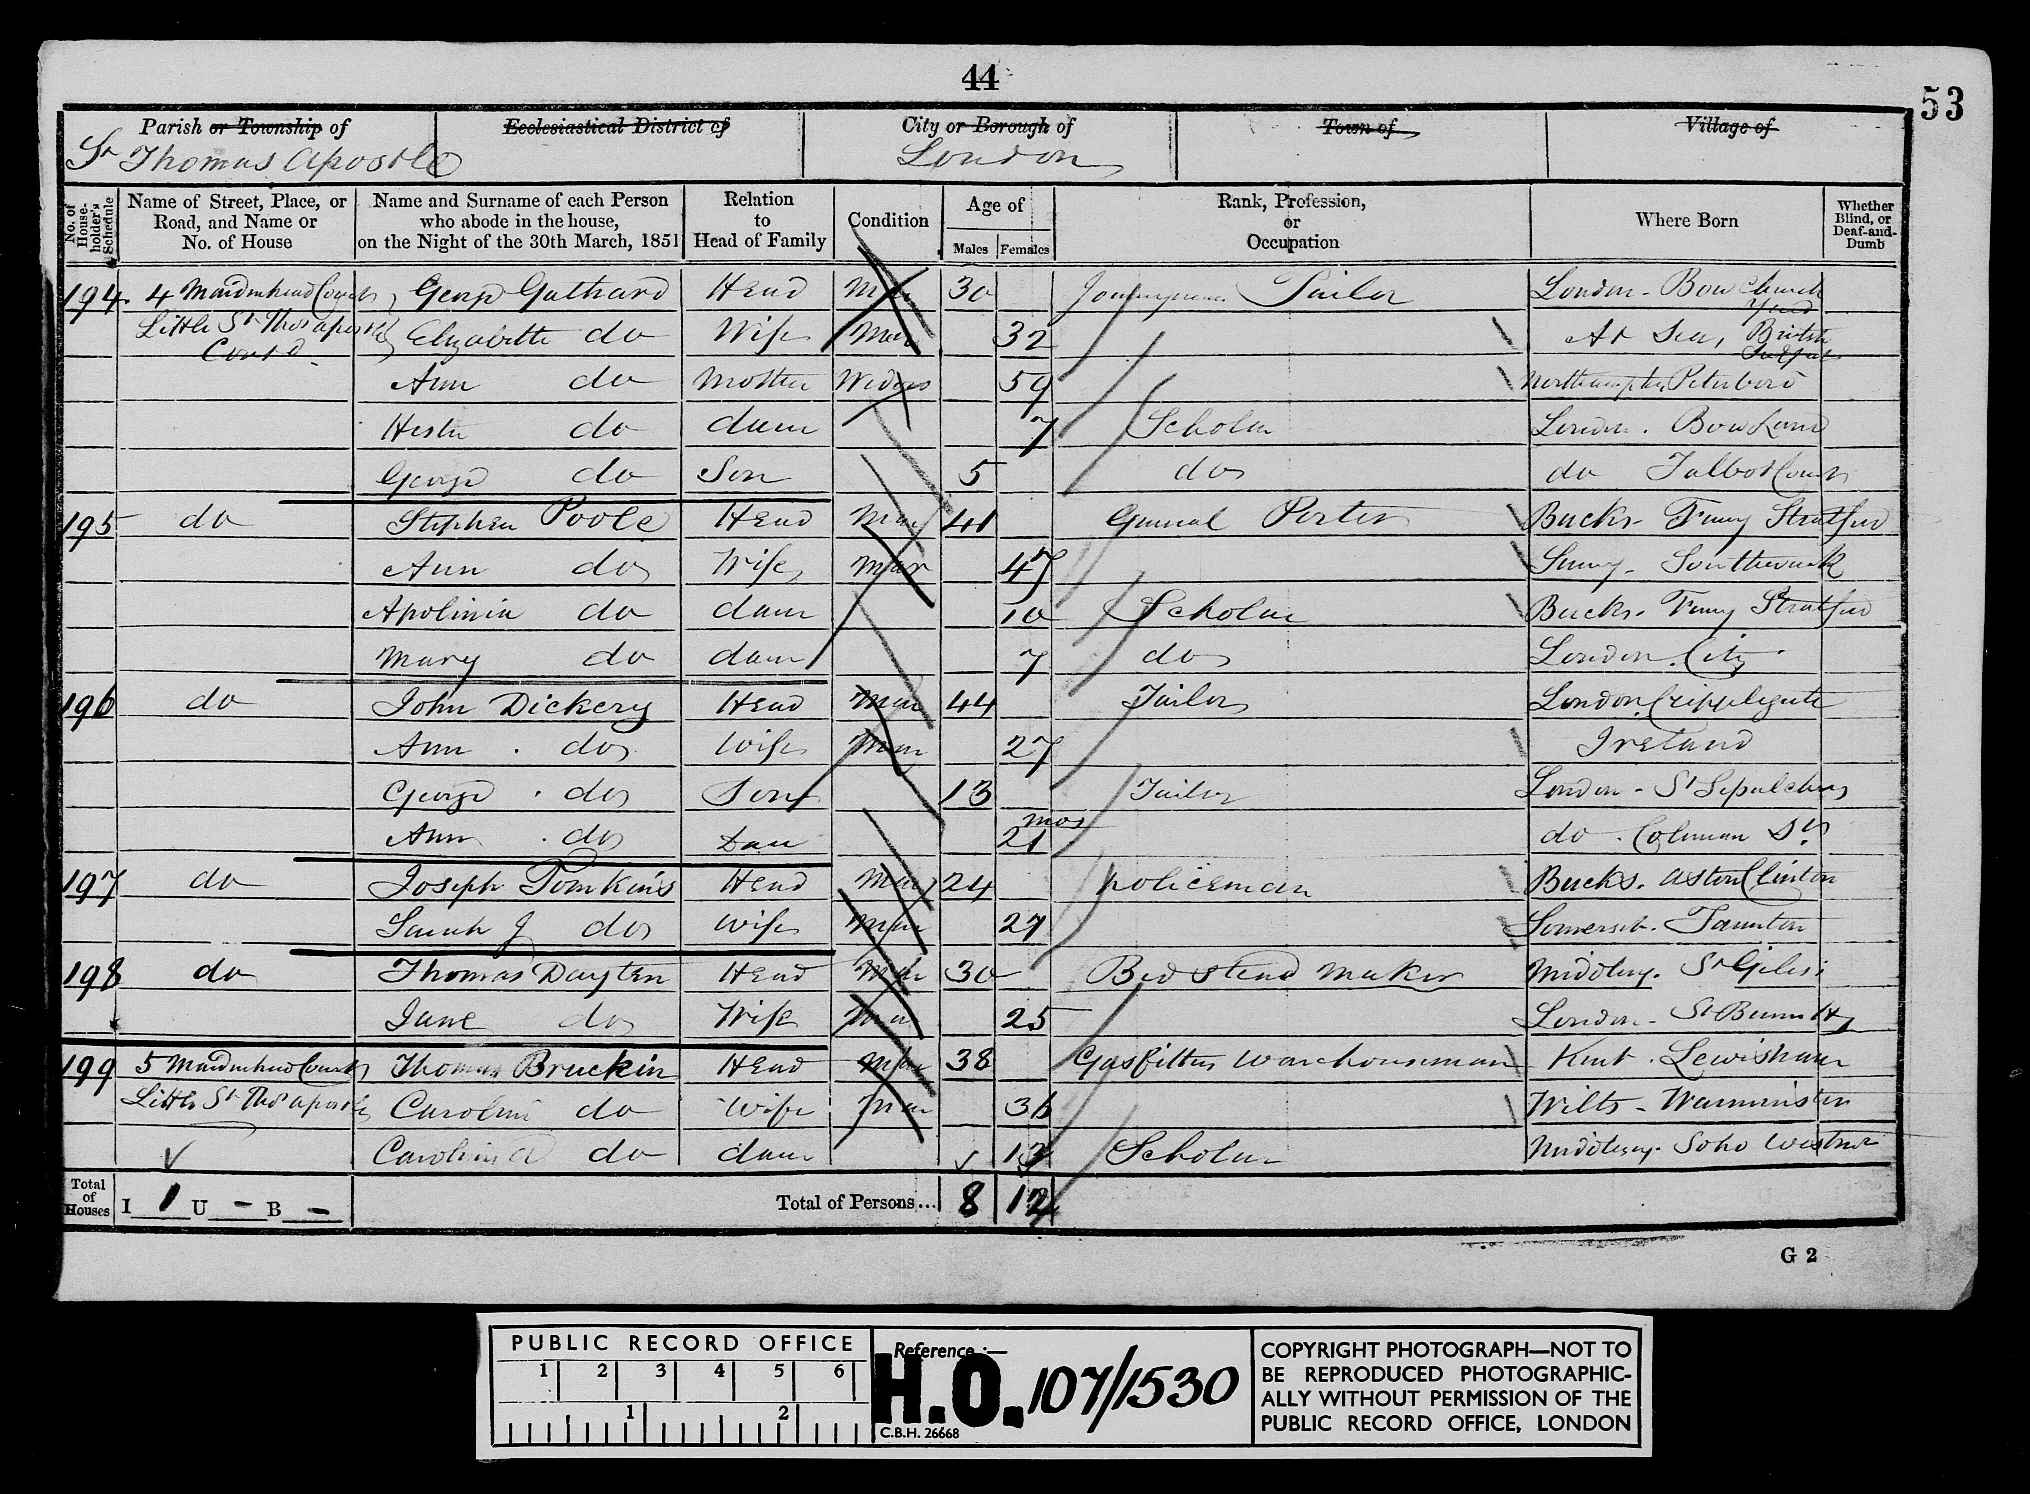 44
53
Parish or Township of
Ecclesiastical District of
City or Borough of
Town of
Village of
St Thomas Apostle
London
No. of House-holder's Schedule
Name of Street, Place, or Road, and Name or No. of House
Name and Surname of each Person who abode in the house, on the Night of the 30th March, 1851
Relation to Head of Family
Condition
Age of
Males Females
Rank, Profession, or Occupation
Where Born
Whether Blind, or Deaf-and-Dumb
194 4 Maidenhead Court George Gathard Head Mar 30 Journeyman Tailor London - Bow Church Yard
Little St Thos Apostle Contd Elizabeth do Wife Mar 32 At Sea, British Subject
Ann do Mother Widow 59 Northampton Peterboro
Hester do daur 7 Scholar London. Bow Lane
George do Son 5 do do Talbot Court
195 do Stephen Poole Head Mar 41 General Porter Bucks - Fenny Stratford
Ann do Wife Mar 47 Surrey - Southwark
Apolinia do daur 10 Scholar Bucks. Fenny Stratford
Mary do daur 7 do London. City
196 do John Dickery Head Mar 44 Tailor London Cripplegate
Ann . do Wife Mar 27 Ireland
George . do Son 13 Tailor London - St Sepulchres
Ann . do Dau 21 mos do . Coleman St.
197 do Joseph Tomkins Head Mar 24 policeman Bucks. Aston Clinton
Sarah J do Wife Mar 27 Somerset. Taunton
198 do Thomas Dayten Head Mar 30 Bed stead maker Middlesy. St Giles
Jane do Wife Mar 25 London - St Bennetts
199 5 Maidenhead Court Thomas Bruckin Head Mar 38 Gasfitters Warehouseman Kent. Lewisham
Little St Thos Apostle Caroline do Wife Mar 36 Wilts - Warminster
Caroline A do daur 13 Scholar Middlesy. Soho Westmr
Total of Houses I 1 U - B -
Total of Persons... 8 12
G 2
PUBLIC RECORD OFFICE
1 2 3 4 5 6
1 2
Reference :—
H.O. 107/1530
C.B.H. 26668
COPYRIGHT PHOTOGRAPH—NOT TO
BE REPRODUCED PHOTOGRAPHIC-
ALLY WITHOUT PERMISSION OF THE
PUBLIC RECORD OFFICE, LONDON